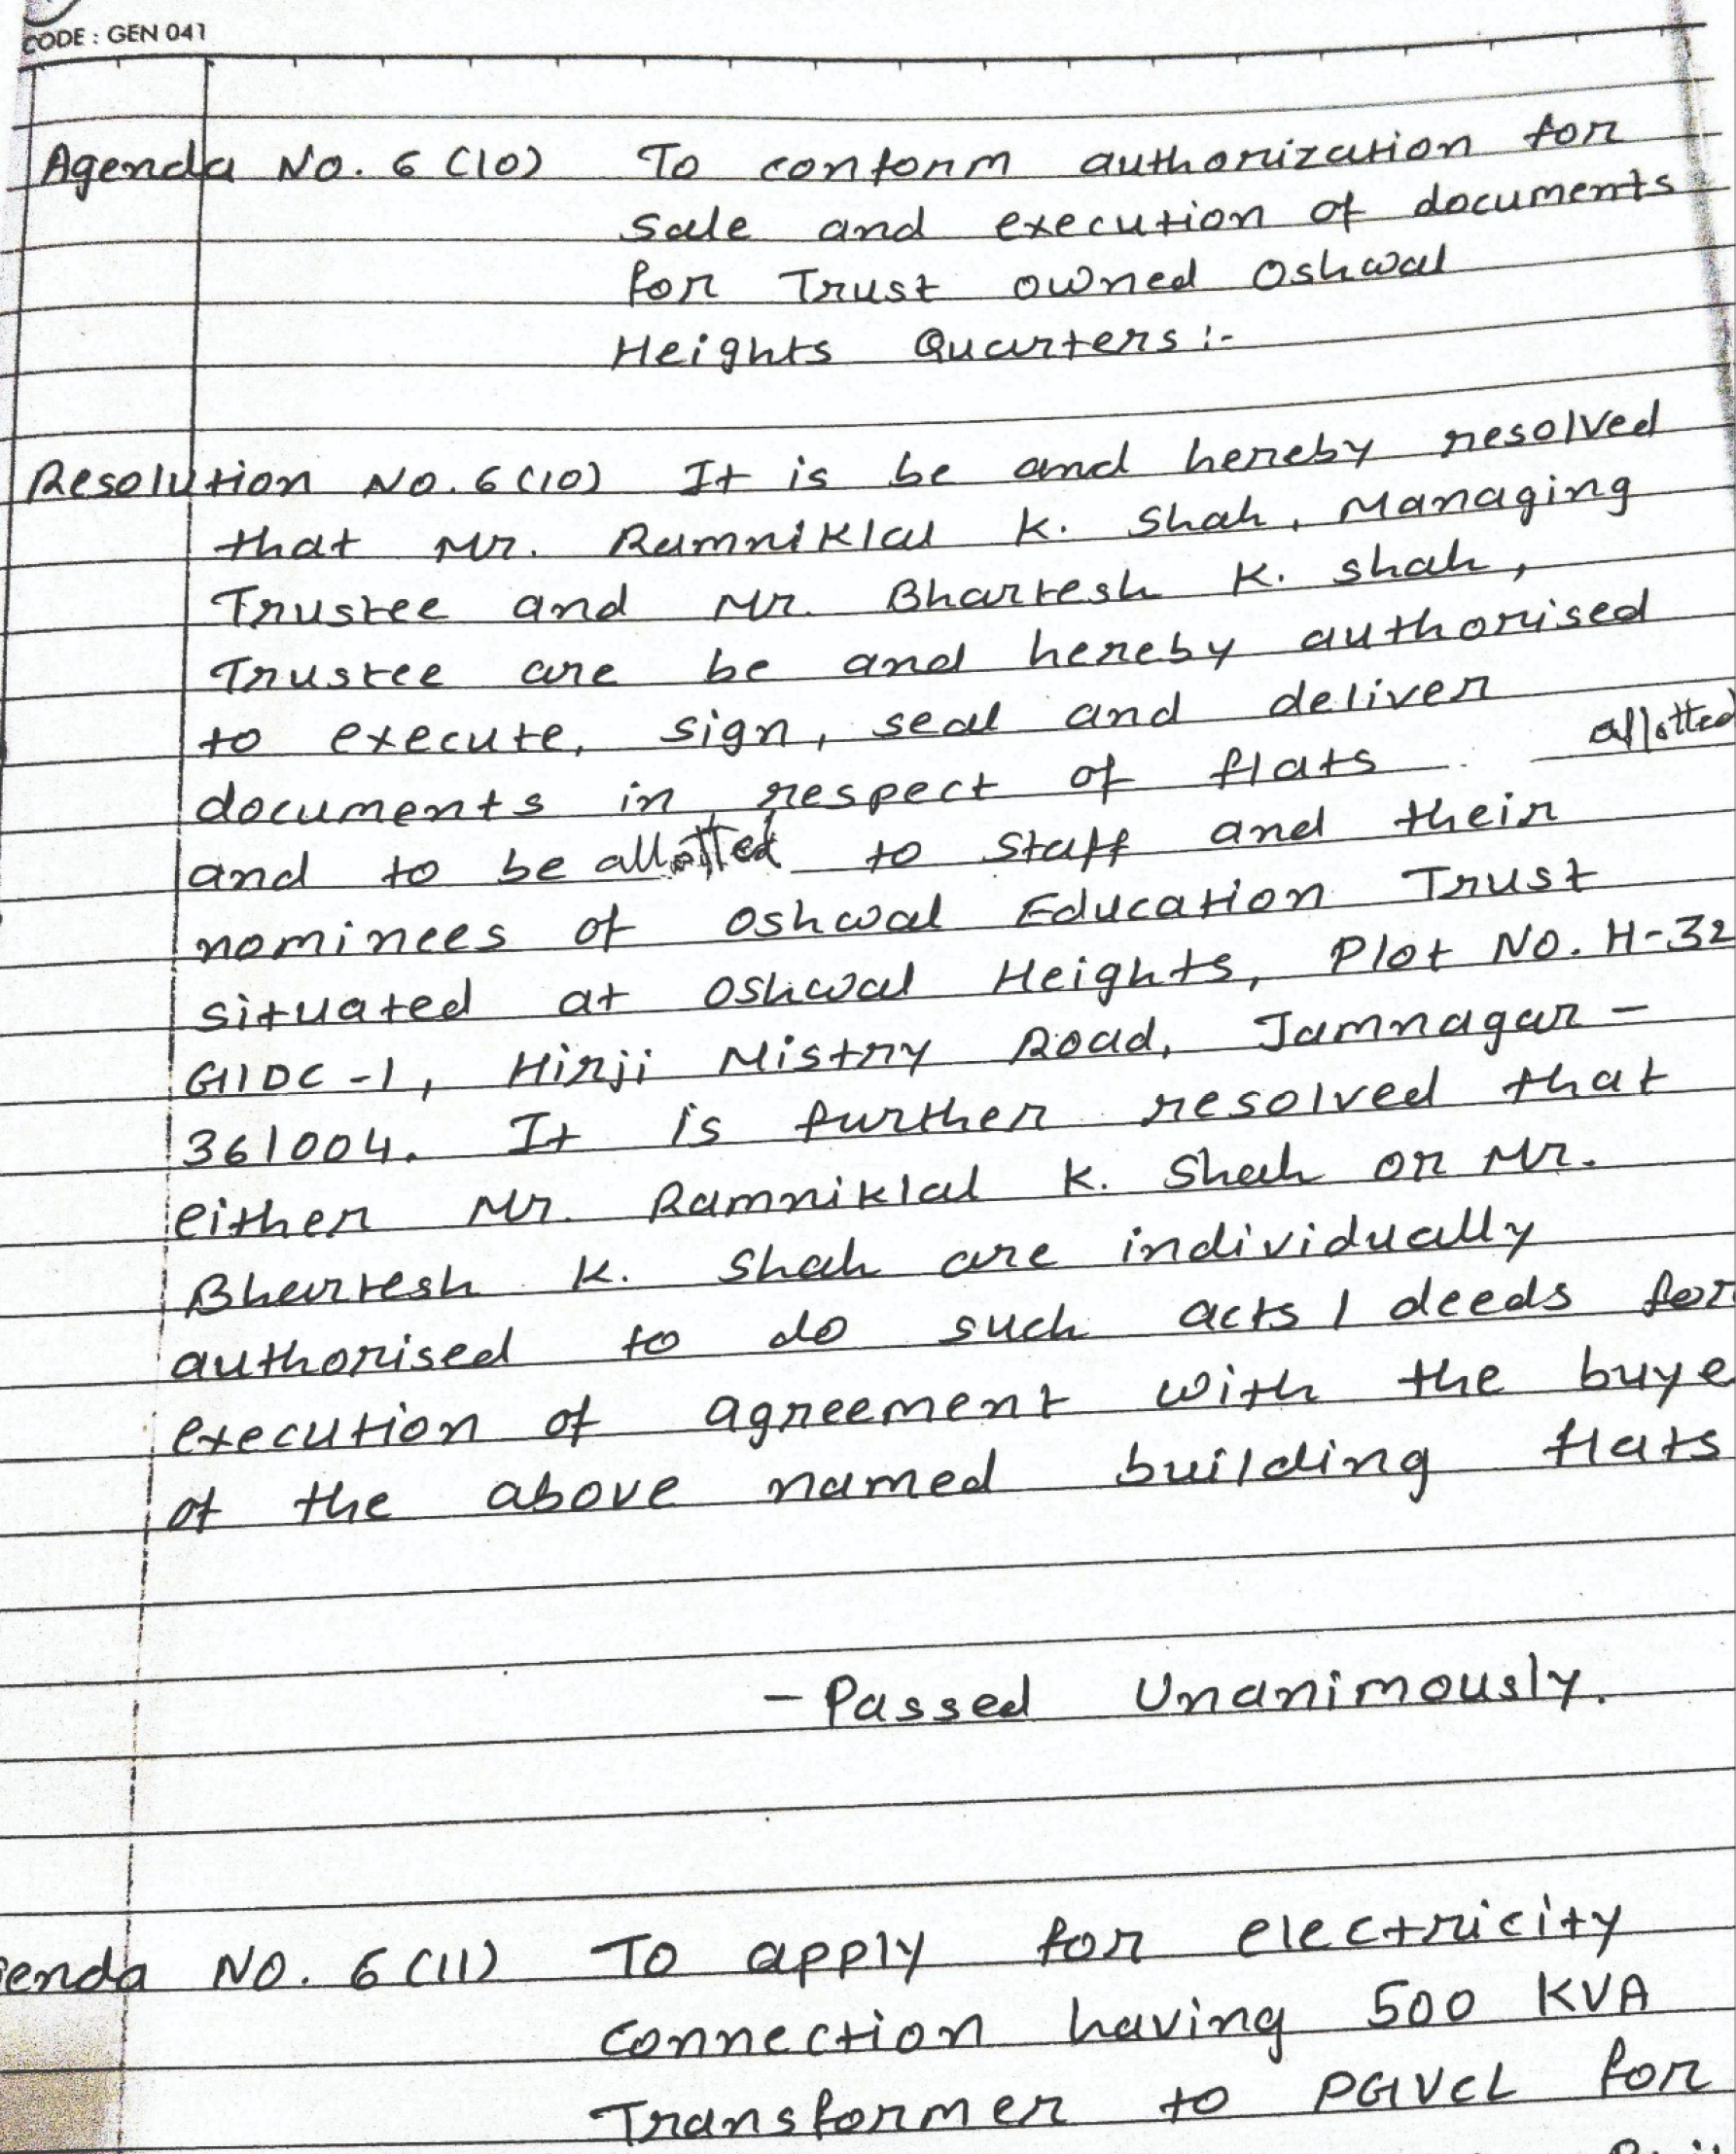 CODE : GEN 041
Agenda No. 6 (10) To conform authorization for
sale and execution of documents
for Trust owned Oshwal
Heights Quarters :-
Resolution No. 6 (10) It is be and hereby resolved
that Mr. Ramniklal K. Shah, Managing
Trustee and Mr. Bhartesh K. shah,
Trustee are be and hereby authorised
to execute, sign, seal and deliver
documents in respect of flats allotted
and to be allotted to staff and their
nominees of Oshwal Education Trust
situated at Oshwal Heights, Plot No. H-32
GIDC -1, Hirji Mistry Road, Jamnagar -
361004. It is further resolved that
either Mr. Ramniklal K. Shah or Mr.
Bhartesh K. Shah are individually
authorised to do such acts / deeds for
execution of agreement with the buye
of the above named building flats
- Passed Unanimously.
enda No. 6 (11) To apply for electricity
connection having 500 KVA
Transformer to PGVCL for